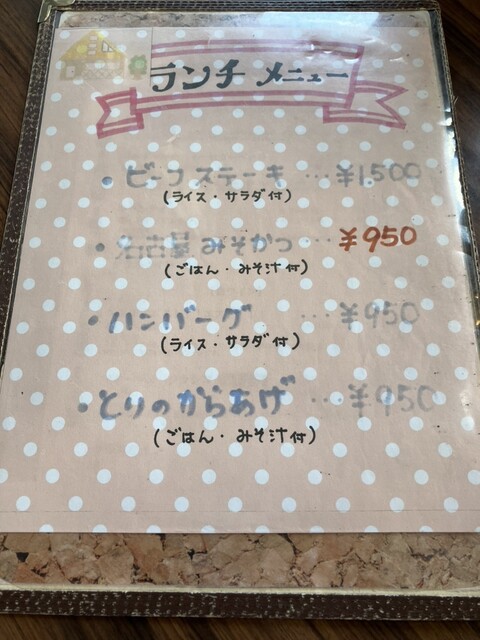 ランチ メニュー
・ビーフステーキ …¥1,500
(ライス・サラダ付)
・名古屋みそかつ…¥950
(ごはん・みそ汁付)
・ハンバーグ …¥950
(ライス・サラダ付)
・とりのからあげ…¥950
(ごはん・みそ汁付)